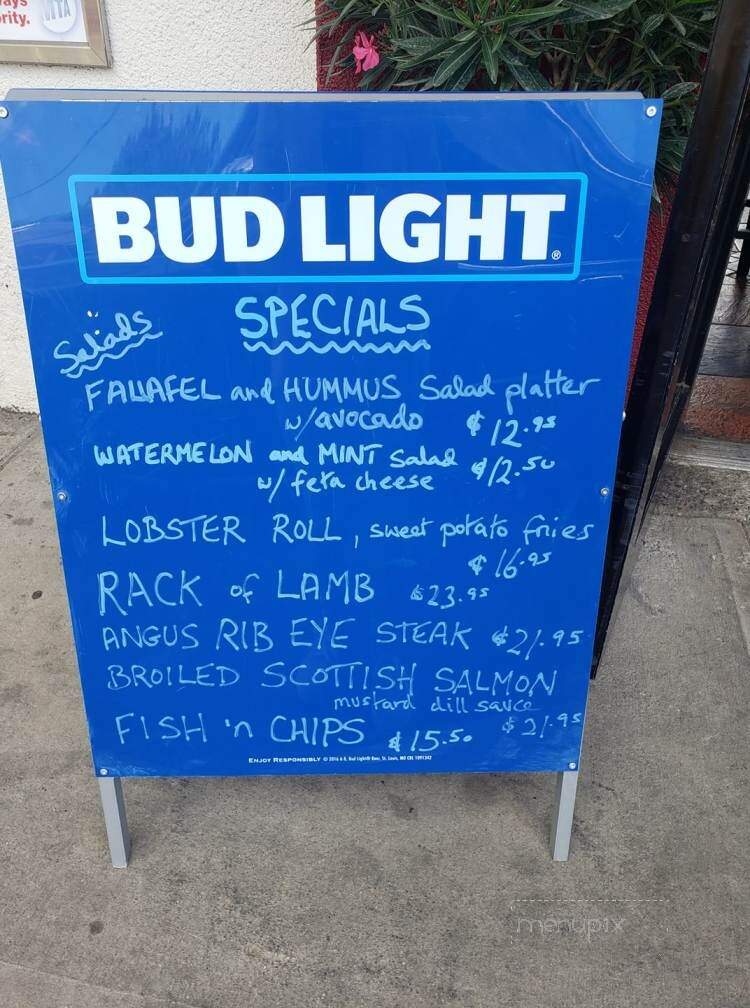 ays
rity.
BUD LIGHT®
SPECIALS
Salads
FALLAFEL and HUMMUS Salad platter
w/avocado $12.95
WATERMELON and MINT Salad $12.50
w/ feta cheese
LOBSTER ROLL, sweet potato fries
$16.95
RACK of LAMB $23.95
ANGUS RIB EYE STEAK $21.95
BROILED SCOTTISH SALMON
mustard dill sauce
$21.95
FISH 'n CHIPS $15.50
ENJOY RESPONSIBLY © 2016 A-B, Bud Light® Beer, St. Louis, MO
menupix